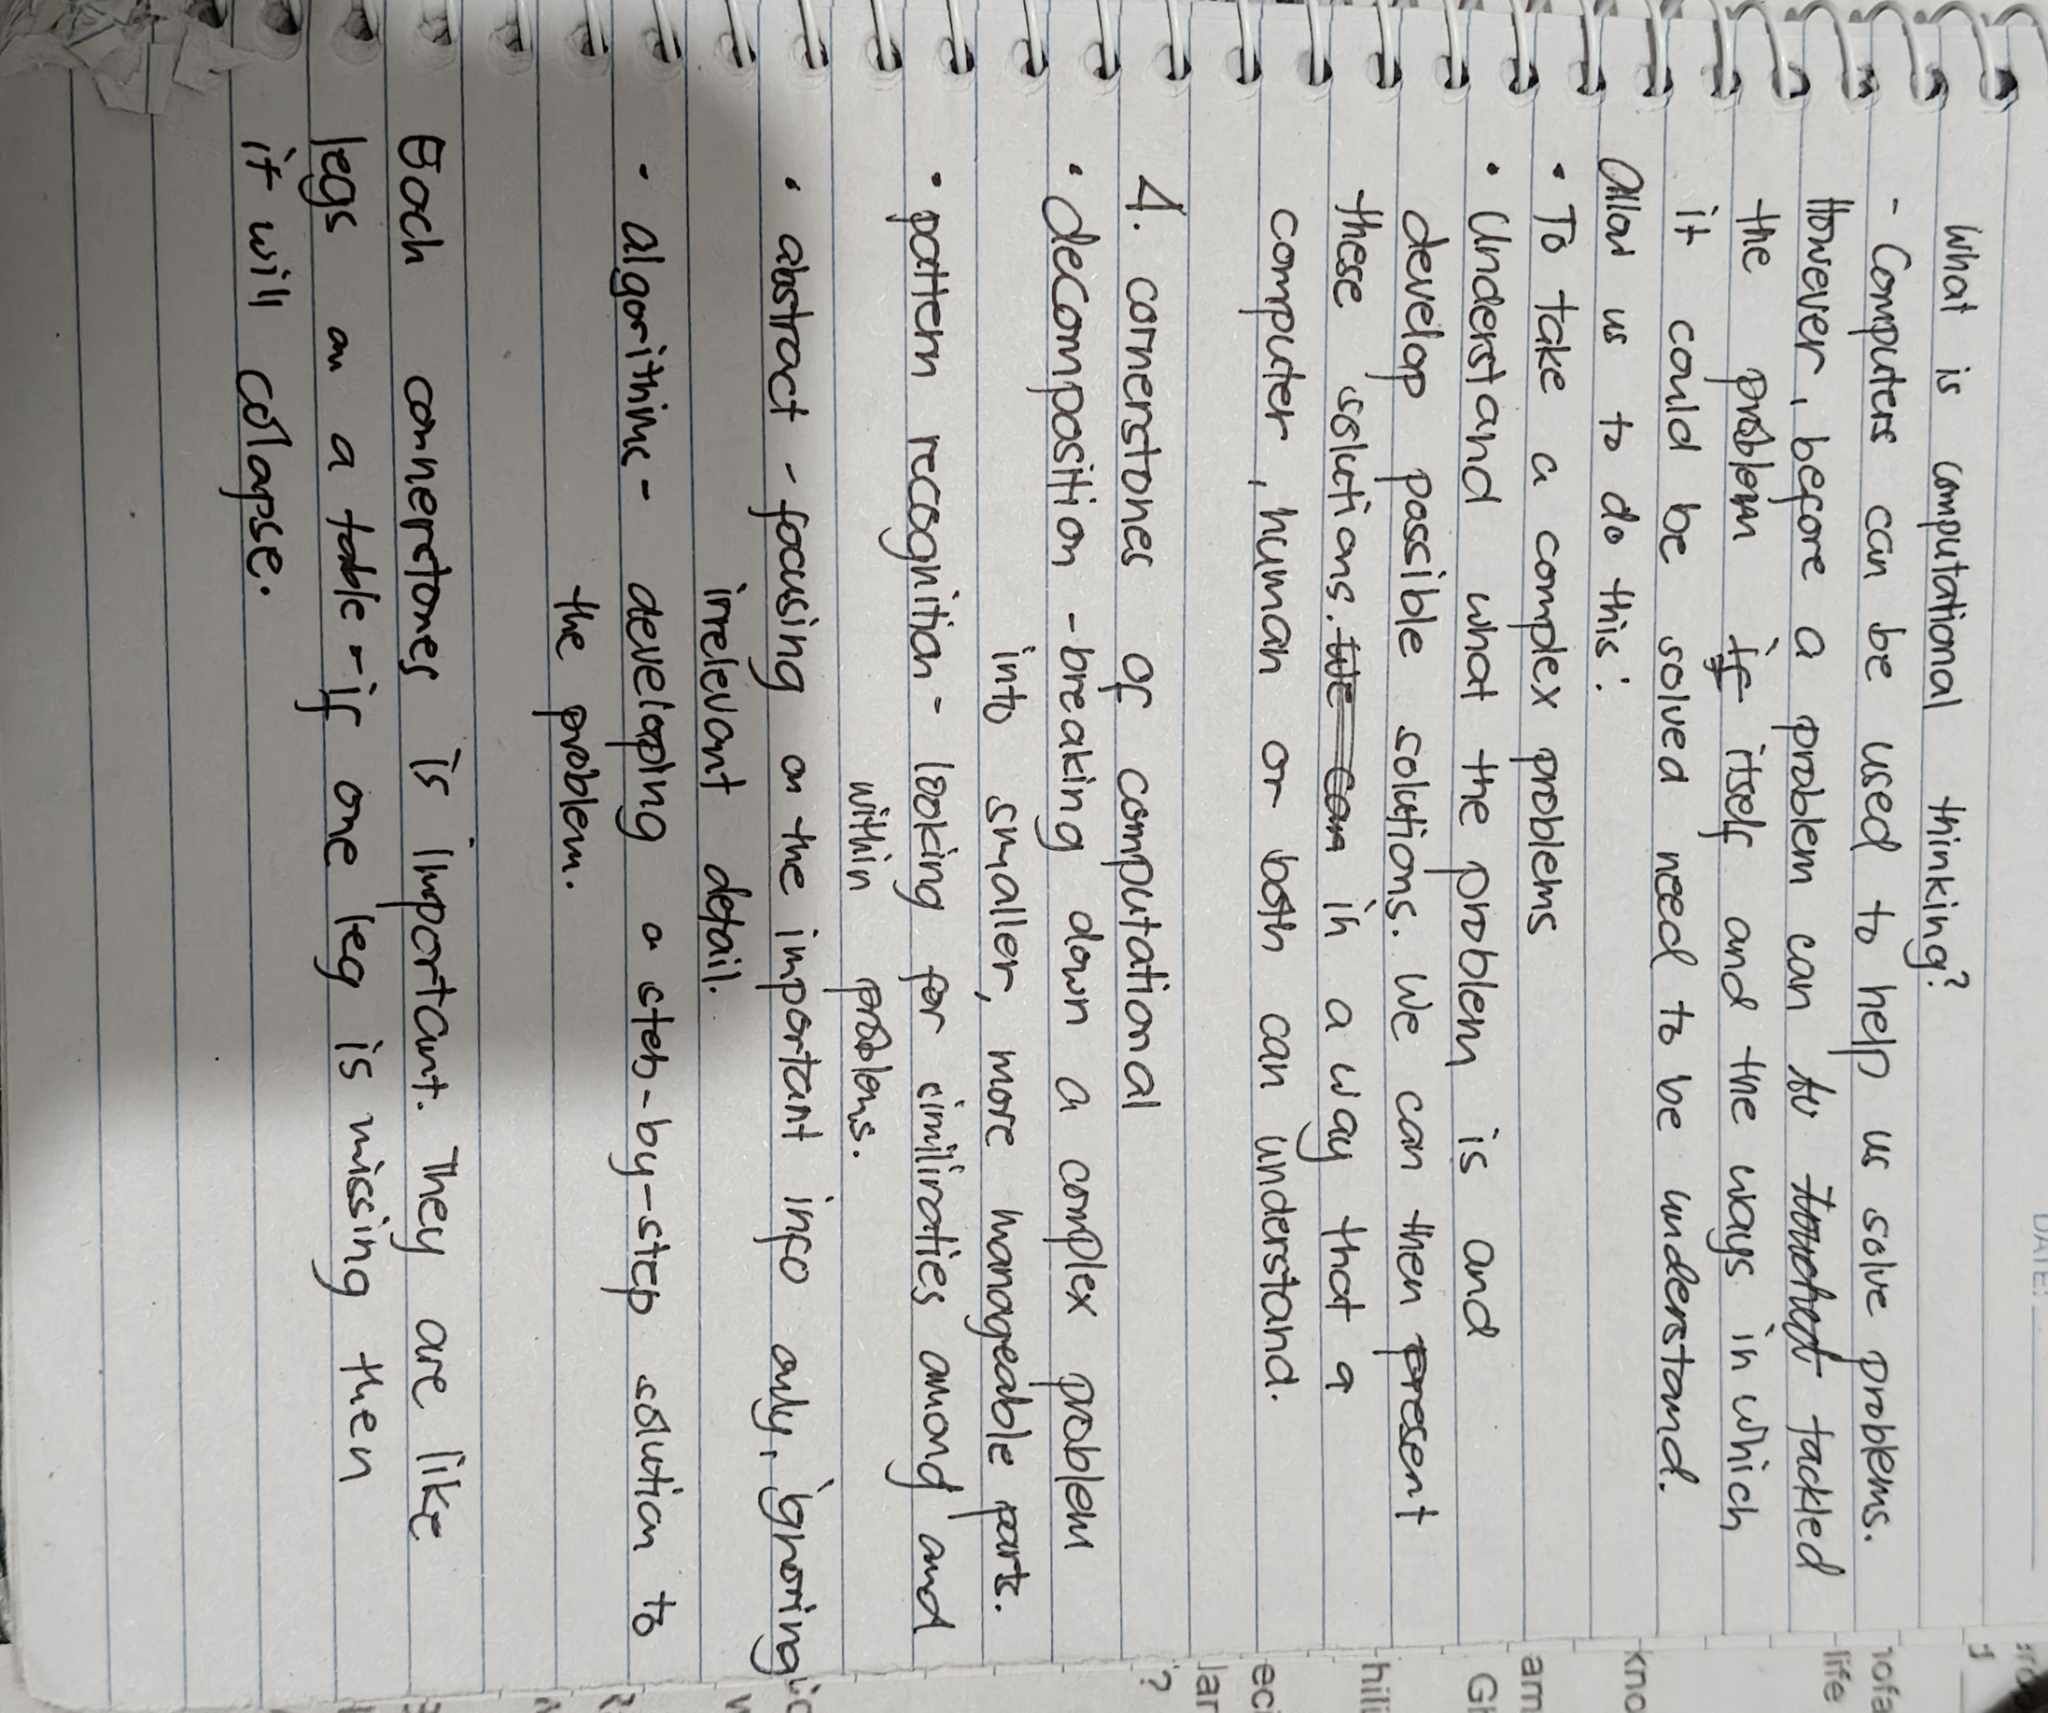 DATE:
What is computational thinking?
- Computers can be used to help us solve problems.
However, before a problem can tackled
the problem if itself and the ways in which
it could be solved need to be understand.
Allow us to do this:
• To take a complex problems
• Understand what the problem is and
develop possible solutions. We can then present
these solutions. We can in a way that a
computer, human or both can understand.
4. cornerstones of computational
• decomposition - breaking down a complex problem
into smaller, more manageable parts.
• pattern recognition - looking for similiraties among and
within problems.
• abstract - focusing on the important info only, ignoring
irrelevant detail.
• algorithmc - developing a steb-by-step solution to
the problem.
Each connerstones is important. They are like
legs on a table - if one leg is missing then
it will collapse.
life
kno
am
Gh
hili
eci
lar
?